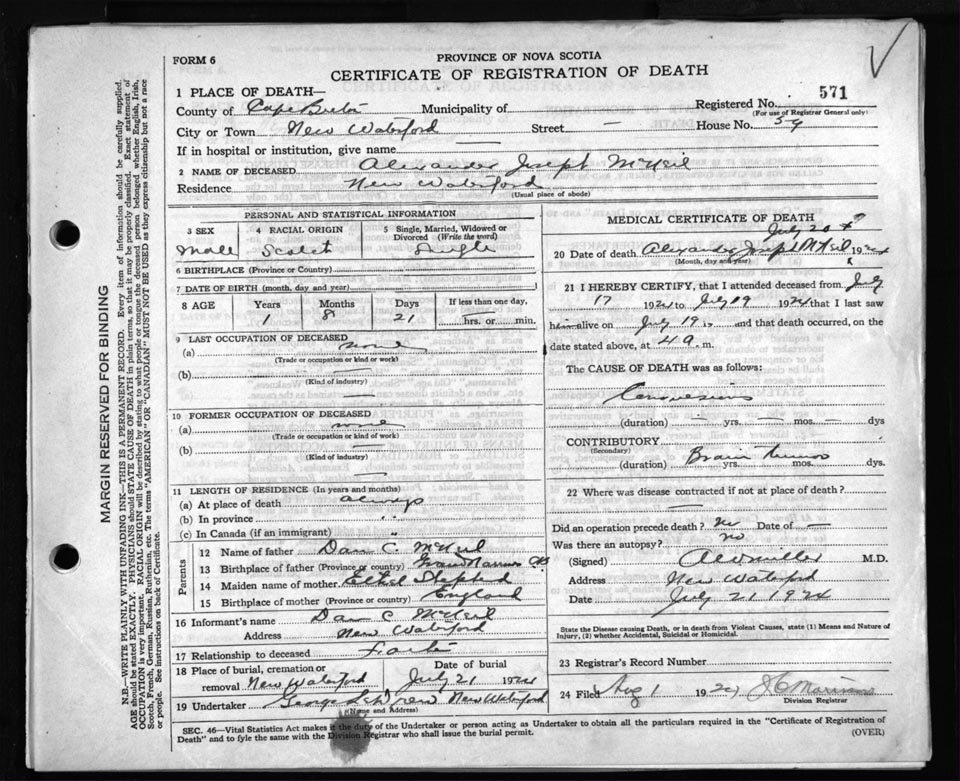 FORM 6
PROVINCE OF NOVA SCOTIA
CERTIFICATE OF REGISTRATION OF DEATH
1 PLACE OF DEATH—
Registered No. 571
(For use of Registrar General only)
County of Cape Breton Municipality of
City or Town New Waterford Street — House No. 59
If in hospital or institution, give name —
2 NAME OF DECEASED Alexander Joseph McNeil
Residence New Waterford
(Usual place of abode)
PERSONAL AND STATISTICAL INFORMATION
3 SEX
Male
4 RACIAL ORIGIN
Scotch
5 Single, Married, Widowed or Divorced (Write the word)
Single
6 BIRTHPLACE (Province or Country)
7 DATE OF BIRTH (month, day and year)
8 AGE Years Months Days If less than one day,
1 8 21 hrs. or min.
9 LAST OCCUPATION OF DECEASED
(a) none
(Trade or occupation or kind or work)
(b) —
(Kind of industry)
10 FORMER OCCUPATION OF DECEASED
(a) none
(Trade or occupation or kind or work)
(b) —
(Kind of industry)
11 LENGTH OF RESIDENCE (In years and months)
(a) At place of death always
(b) In province "
(c) In Canada (if an immigrant) "
Parents
12 Name of father Dan C. McNeil
13 Birthplace of father (Province or country) Grand Narrows CB
14 Maiden name of mother Ethel
15 Birthplace of mother (Province or country) England
16 Informant's name Dan C McNeil
Address New Waterford
17 Relationship to deceased
18 Place of burial, cremation or removal New Waterford
Date of burial
July 21 1924
19 Undertaker George New Waterford
(Name and Address)
MEDICAL CERTIFICATE OF DEATH
July 20
20 Date of death Alexander Joseph McNeil 1924
(Month, day and year)
21 I HEREBY CERTIFY, that I attended deceased from July
17 1924 to July 19 1924 that I last saw
him alive on July 19 and that death occurred, on the
date stated above, at 4 a. m.
The CAUSE OF DEATH was as follows:
Convulsions
(duration) — yrs. — mos. — dys.
CONTRIBUTORY
(Secondary)
Brain
(duration) yrs. mos. dys.
22 Where was disease contracted if not at place of death?
—
Did an operation precede death? No Date of —
Was there an autopsy? no
(Signed) M.D.
Address New Waterford
Date July 21 1924
State the Disease causing Death, or in death from Violent Causes, state (1) Means and Nature of
Injury, (2) whether Accidental, Suicidal or Homicidal.
23 Registrar's Record Number
24 Filed Aug 1 1924
Division Registrar
SEC. 46—Vital Statistics Act makes it the duty of the Undertaker or person acting as Undertaker to obtain all the particulars required in the "Certificate of Registration of
Death" and to fyle the same with the Division Registrar who shall issue the burial permit.
(OVER)
MARGIN RESERVED FOR BINDING
N.B.—WRITE PLAINLY WITH UNFADING INK—THIS IS A PERMANENT RECORD. Every item of information should be carefully supplied.
AGE should be stated EXACTLY. PHYSICIANS should STATE CAUSE OF DEATH in plain terms, so that it may be properly classified. Exact statement of
OCCUPATION is very important. RACIAL ORIGIN will be described by stating to what people or tongue the deceased person belonged whether English, Irish,
Scotch, French, German, Russian, Ruthenian, etc. The terms "AMERICAN" OR "CANADIAN" MUST NOT BE USED as they express citizenship but not a race
or people. See instructions on back of Certificate.